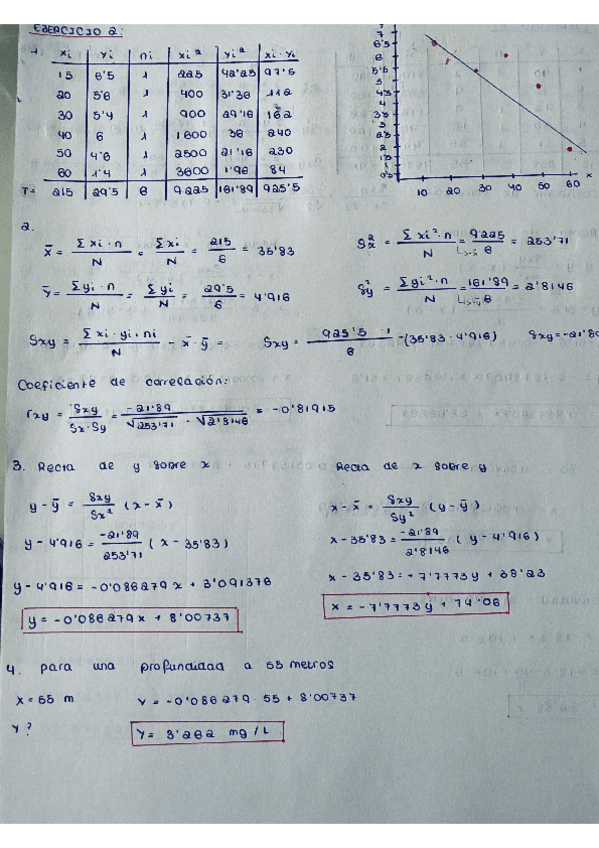 EJERCICIO 2:
1. xi yi ni xi² yi² xi·yi
15 6'5 1 225 42'25 97'5
20 5'6 1 400 31'36 112
30 5'4 1 900 29'16 162
40 6 1 1600 36 240
50 4'6 1 2500 21'16 230
60 1'4 1 3600 1'96 84
T= 215 29'5 6 9225 161'89 925'5
7
6'5
6
5'5
5
4'5
4
3'5
3
2'5
2
1'5
1
0'5
10 20 30 40 50 60 x
2.
x̄ = Σxi·n / N = Σxi / N = 215 / 6 = 35'83
Sx² = Σxi²·n / N = 9225 / 6 = 253'71
ȳ = Σyi·n / N = Σyi / N = 29'5 / 6 = 4'916
Sy² = Σyi²·n / N = 161'89 / 6 = 2'8146
Sxy = Σxi·yi·ni / N - x̄·ȳ = Sxy = 925'5·1 / 6 -(35'83·4'916) Sxy=-21'89
Coeficiente de correlación:
rxy = Sxy / Sx·Sy = -21'89 / √253'71 · √2'8146 = -0'81915
3. Recta de y sobre x
Recta de x sobre y
y-ȳ = Sxy / Sx² (x-x̄)
x-x̄ = Sxy / Sy² (y-ȳ)
y-4'916 = -21'89 / 253'71 (x-35'83)
x-35'83 = -21'89 / 2'8146 (y-4'916)
y-4'916 = -0'086279x + 3'091376
x-35'83 = -7'7773y + 38'23
y = -0'086279x + 8'00737
x = -7'7773y + 74'06
4. para una profundidad a 55 metros
x = 55 m y = -0'086279·55 + 8'00737
y?
y = 3'262 mg/L